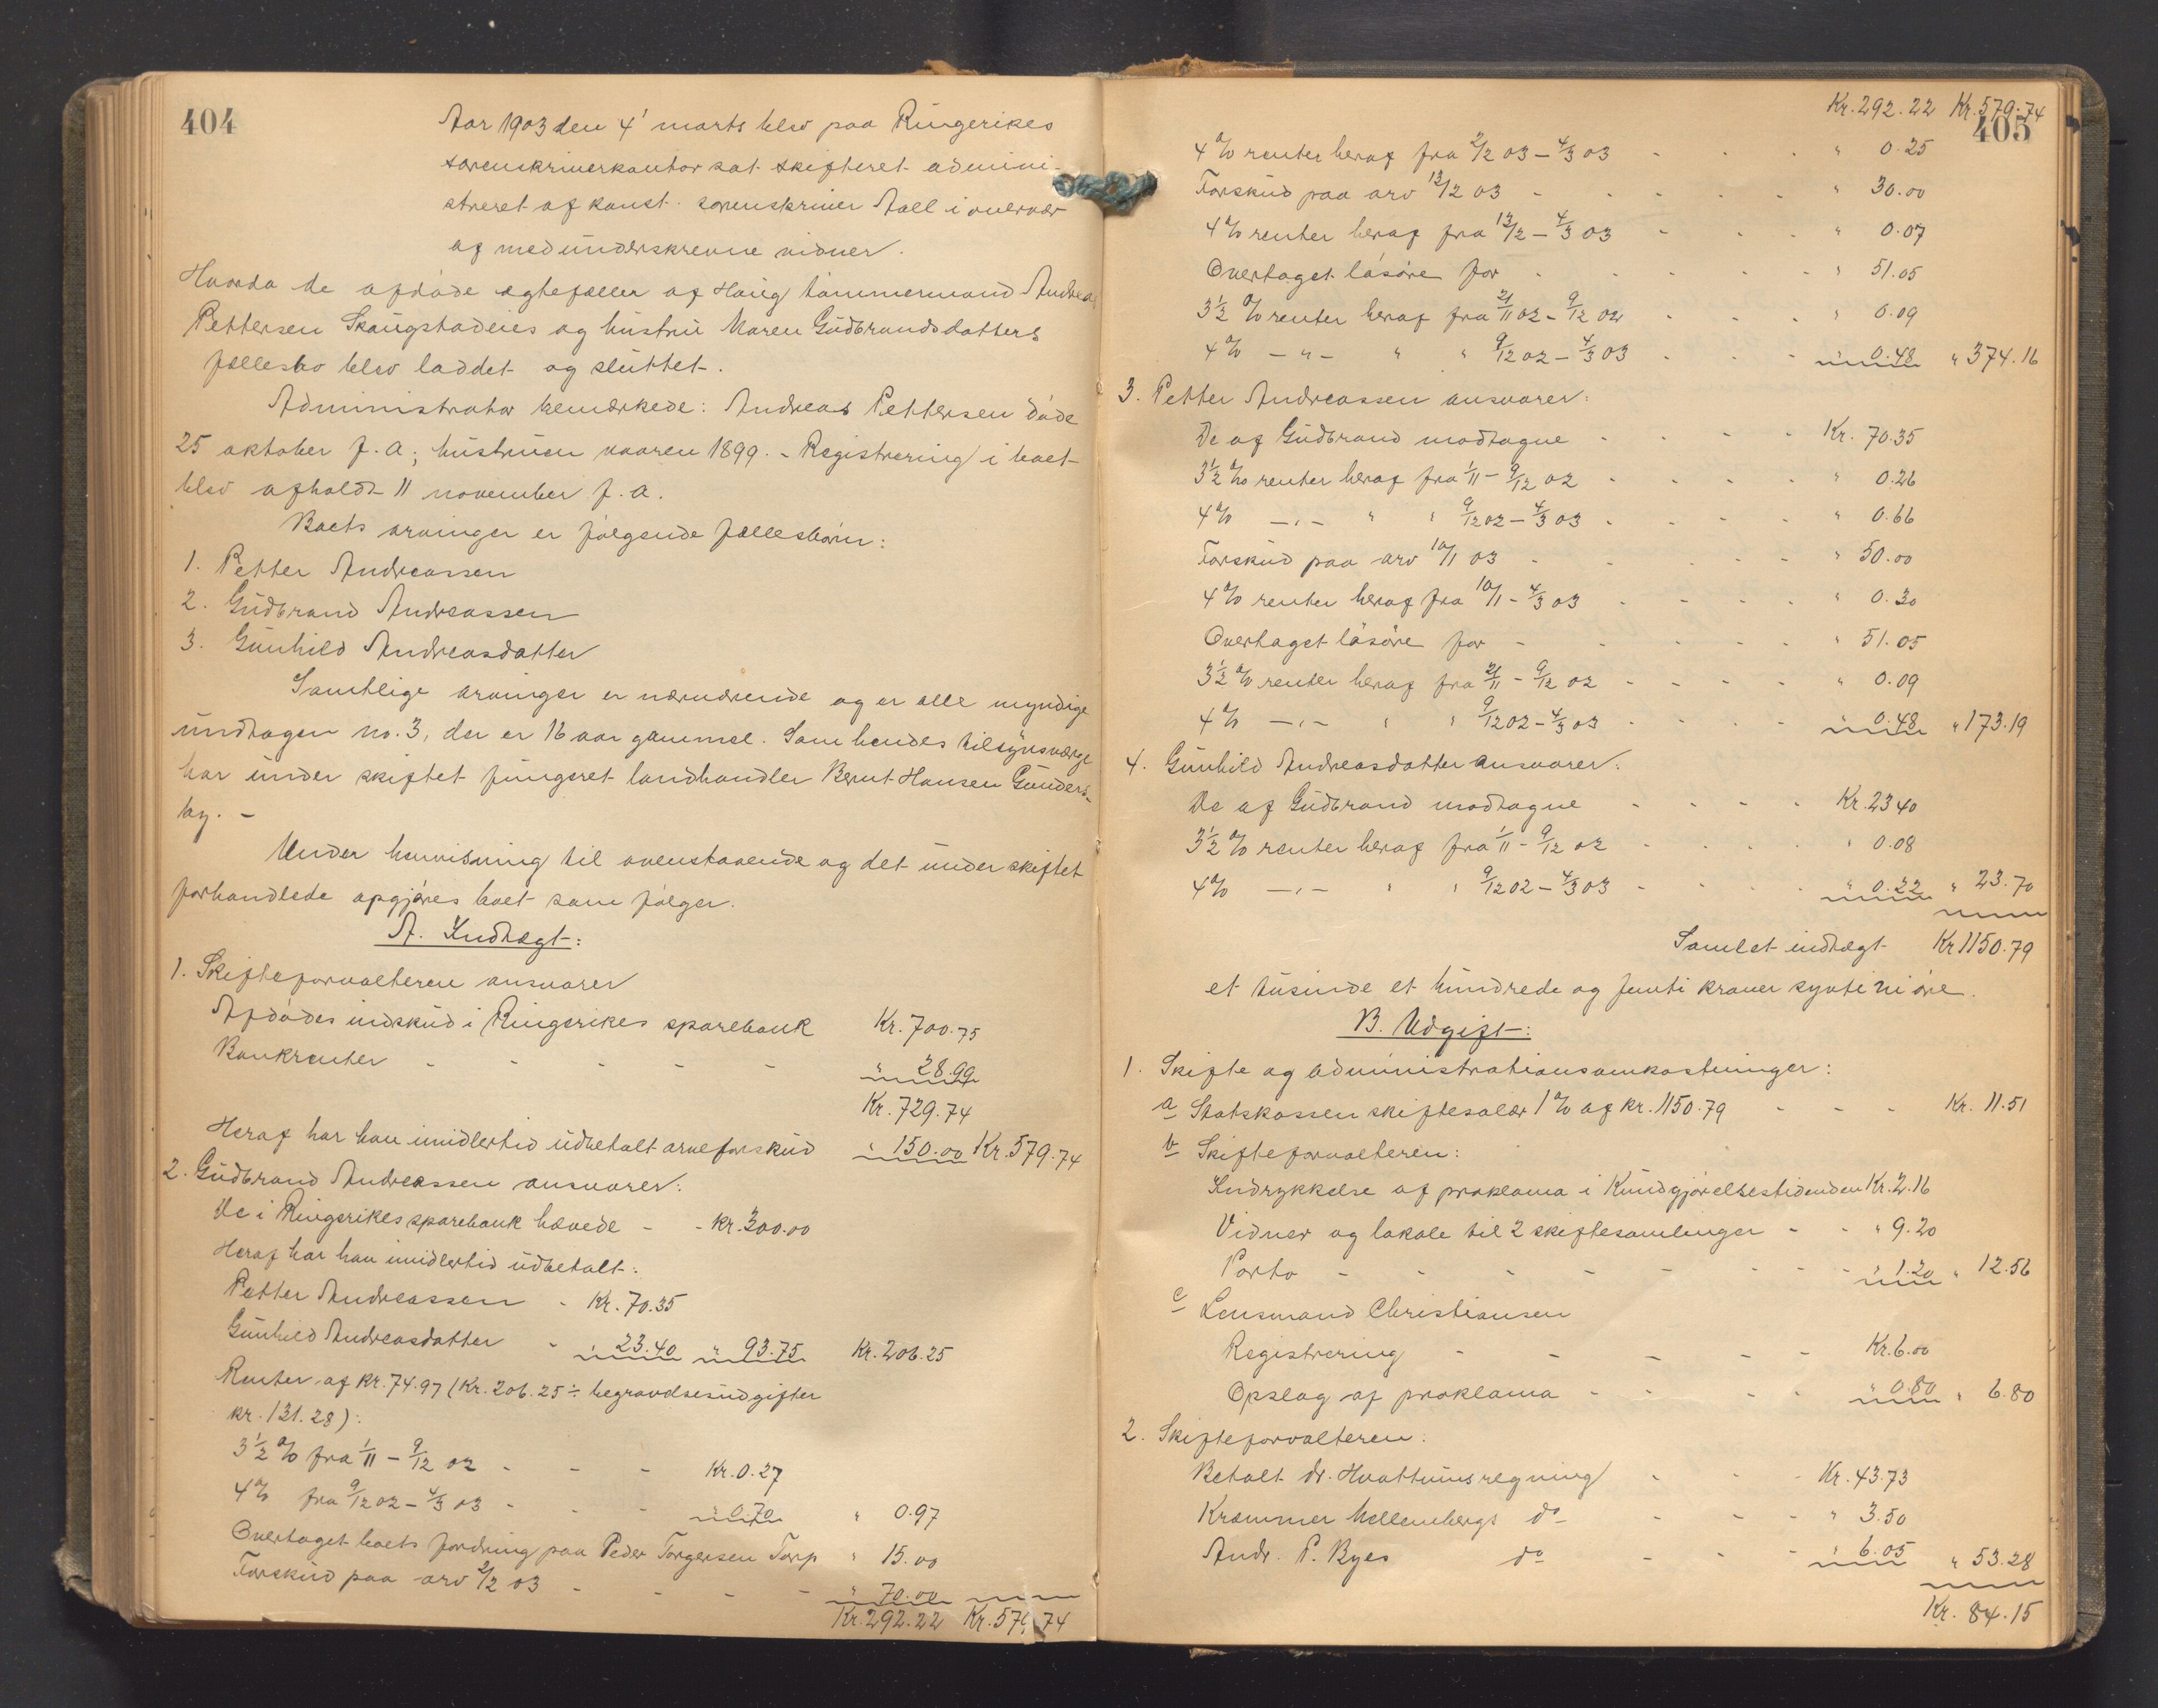 404
Aar 1903 den 4' marts blev paa Ringerikes
sorenskriverkontor sat skifteret admini-
streret af konst. sorenskriver Aall i overvær
af medunderskrevne vidner.
Hvorda de afdøde ægtefæller af Haug tømmermand Andreas
Pettersen Skaugstadeies og hustru Maren Gudbrandsdatters
fællesbo blev laddet og sluttet.
Administrator bemærkede: Andreas Pettersen døde
25 oktober f. a.; hustruen vaaren 1899. - Registrering i boet
blev afholdt 11 november f. a.
Boets arvinger er følgende fællesbørn:
1. Petter Andreassen
2. Gudbrand Andreassen
3. Gunhild Andreasdatter
Samtlige arvinger er nærværende og er alle myndige
undtagen no. 3, der er 16 aar gammel. Som hendes tilsynsværge
har under skiftet fungeret landhandler Bernt Hansen Gunders-
by. -
Under henvisning til ovenstaaende og det under skiftet
forhandlede opgjøres boet som følger.
A. Indtægt:
1. Skifteforvalteren ansvarer
Afdødes indskud i Ringerikes sparebank Kr. 700.75
Bankrenter - - - - - " 28.99
Kr. 729.74
Heraf har han imidlertid udbetalt arveforskud " 150.00 Kr. 579.74
2. Gudbrand Andreassen ansvarer:
De i Ringerikes sparebank hævede - - Kr. 300.00
Heraf har han imidlertid udbetalt:
Petter Andreassen - Kr. 70.35
Gunhild Andreasdatter - " 23.40 " 93.75 Kr. 206.25
Renter af kr. 74.97 (Kr. 206.25 ÷ begravelsesudgifter
kr. 131.28):
3½ % fra 1/11 - 9/12 02 - - - Kr. 0.27
4 % fra 9/12 02 - 4/3 03 - - - " 0.70 " 0.97
Overtaget boets fordring paa Peder Torgersen Torp " 15.00
Forskud paa arv 2/2 03 - - - - " 70.00
Kr. 292.22 Kr. 579.74
405
Kr. 292.22 Kr. 579.74
4 % renter heraf fra 2/2 03 - 4/3 03 - - - " 0.25
Forskud paa arv 13/2 03 - - - - - " 30.00
4 % renter heraf fra 13/2 - 4/3 03 - - - " 0.07
Overtaget løsøre for - - - - - " 51.05
3½ % renter heraf fra 21/11 02 - 9/12 02 - - - " 0.09
4 % - " - " " 9/12 02 - 4/3 03 - - - " 0.48 " 374.16
3. Petter Andreassen ansvarer:
De af Gudbrand modtagne - - - - Kr. 70.35
3½ % renter heraf fra 1/11 - 9/12 02 - - - - " 0.26
4 % - " - " " 9/12 02 - 4/3 03 - - - - " 0.66
Forskud paa arv 10/1 03 - - - - - " 50.00
4 % renter heraf fra 10/1 - 4/3 03 - - - - " 0.30
Overtaget løsøre for - - - - - " 51.05
3½ % renter heraf fra 21/11 - 9/12 02 - - - - " 0.09
4 % - " - " " 9/12 02 - 4/3 03 - - - - " 0.48 " 173.19
4. Gunhild Andreasdatter ansvarer:
De af Gudbrand modtagne - - - - Kr. 23 40
3½ % renter heraf fra 1/11 - 9/12 02 - - - - " 0.08
4 % - " - " " 9/12 02 - 4/3 03 - - - - " 0.22 " 23.70
Samlet indtægt Kr 1150.79
et tusinde et hundrede og femti kroner sytti ni øre.
B. Udgift:
1. Skifte og administrationsomkostninger:
a Statskassen skiftesalær 1 % af kr. 1150.79 - - - Kr. 11.51
b Skifteforvalteren:
Indrykkelse af proklama i Kundgjørelsestidenden Kr. 2.16
Vidner og lokale til 2 skiftesamlinger - - " 9.20
Porto - - - - - - - - " 1.20 " 12.56
c Lensmand Christiansen
Registrering - - - - - Kr. 6.00
Opslag af proklama - - - - " 0.80 " 6.80
2. Skifteforvalteren:
Betalt dr. Hvattums regning - - - Kr. 43.73
Kræmmer Mellembergs do - - - " 3.50
Andr. P. Byes do - - - " 6.05 " 53.28
Kr. 84.15